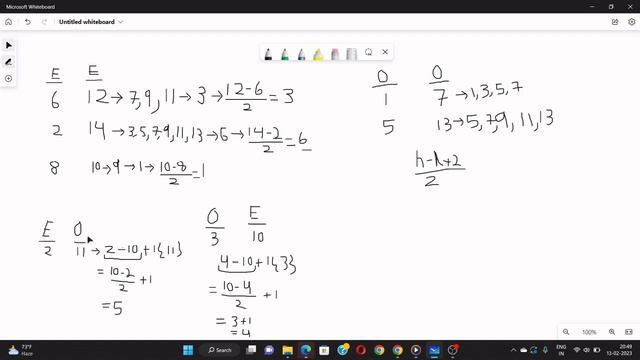 Microsoft Whiteboard
Untitled whiteboard
E E
6 12 → 7, 9, 11 → 3 → 12-6/2 = 3
2 14 → 3, 5, 7, 9, 11, 13 → 6 → 14-2/2 = 6
8 10 → 9 → 1 → 10-8/2 = 1
O O
1 7 → 1, 3, 5, 7
5 13 → 5, 7, 9, 11, 13
h-l+2/2
E O
2 11 → 2-10 + 1{11}
= 10-2/2 + 1
= 5
O E
3 10
4-10 + 1{3}
= 10-4/2 + 1
= 3+1
= 4
100%
73°F
Haze
ENG
IN
20:49
13-02-2023